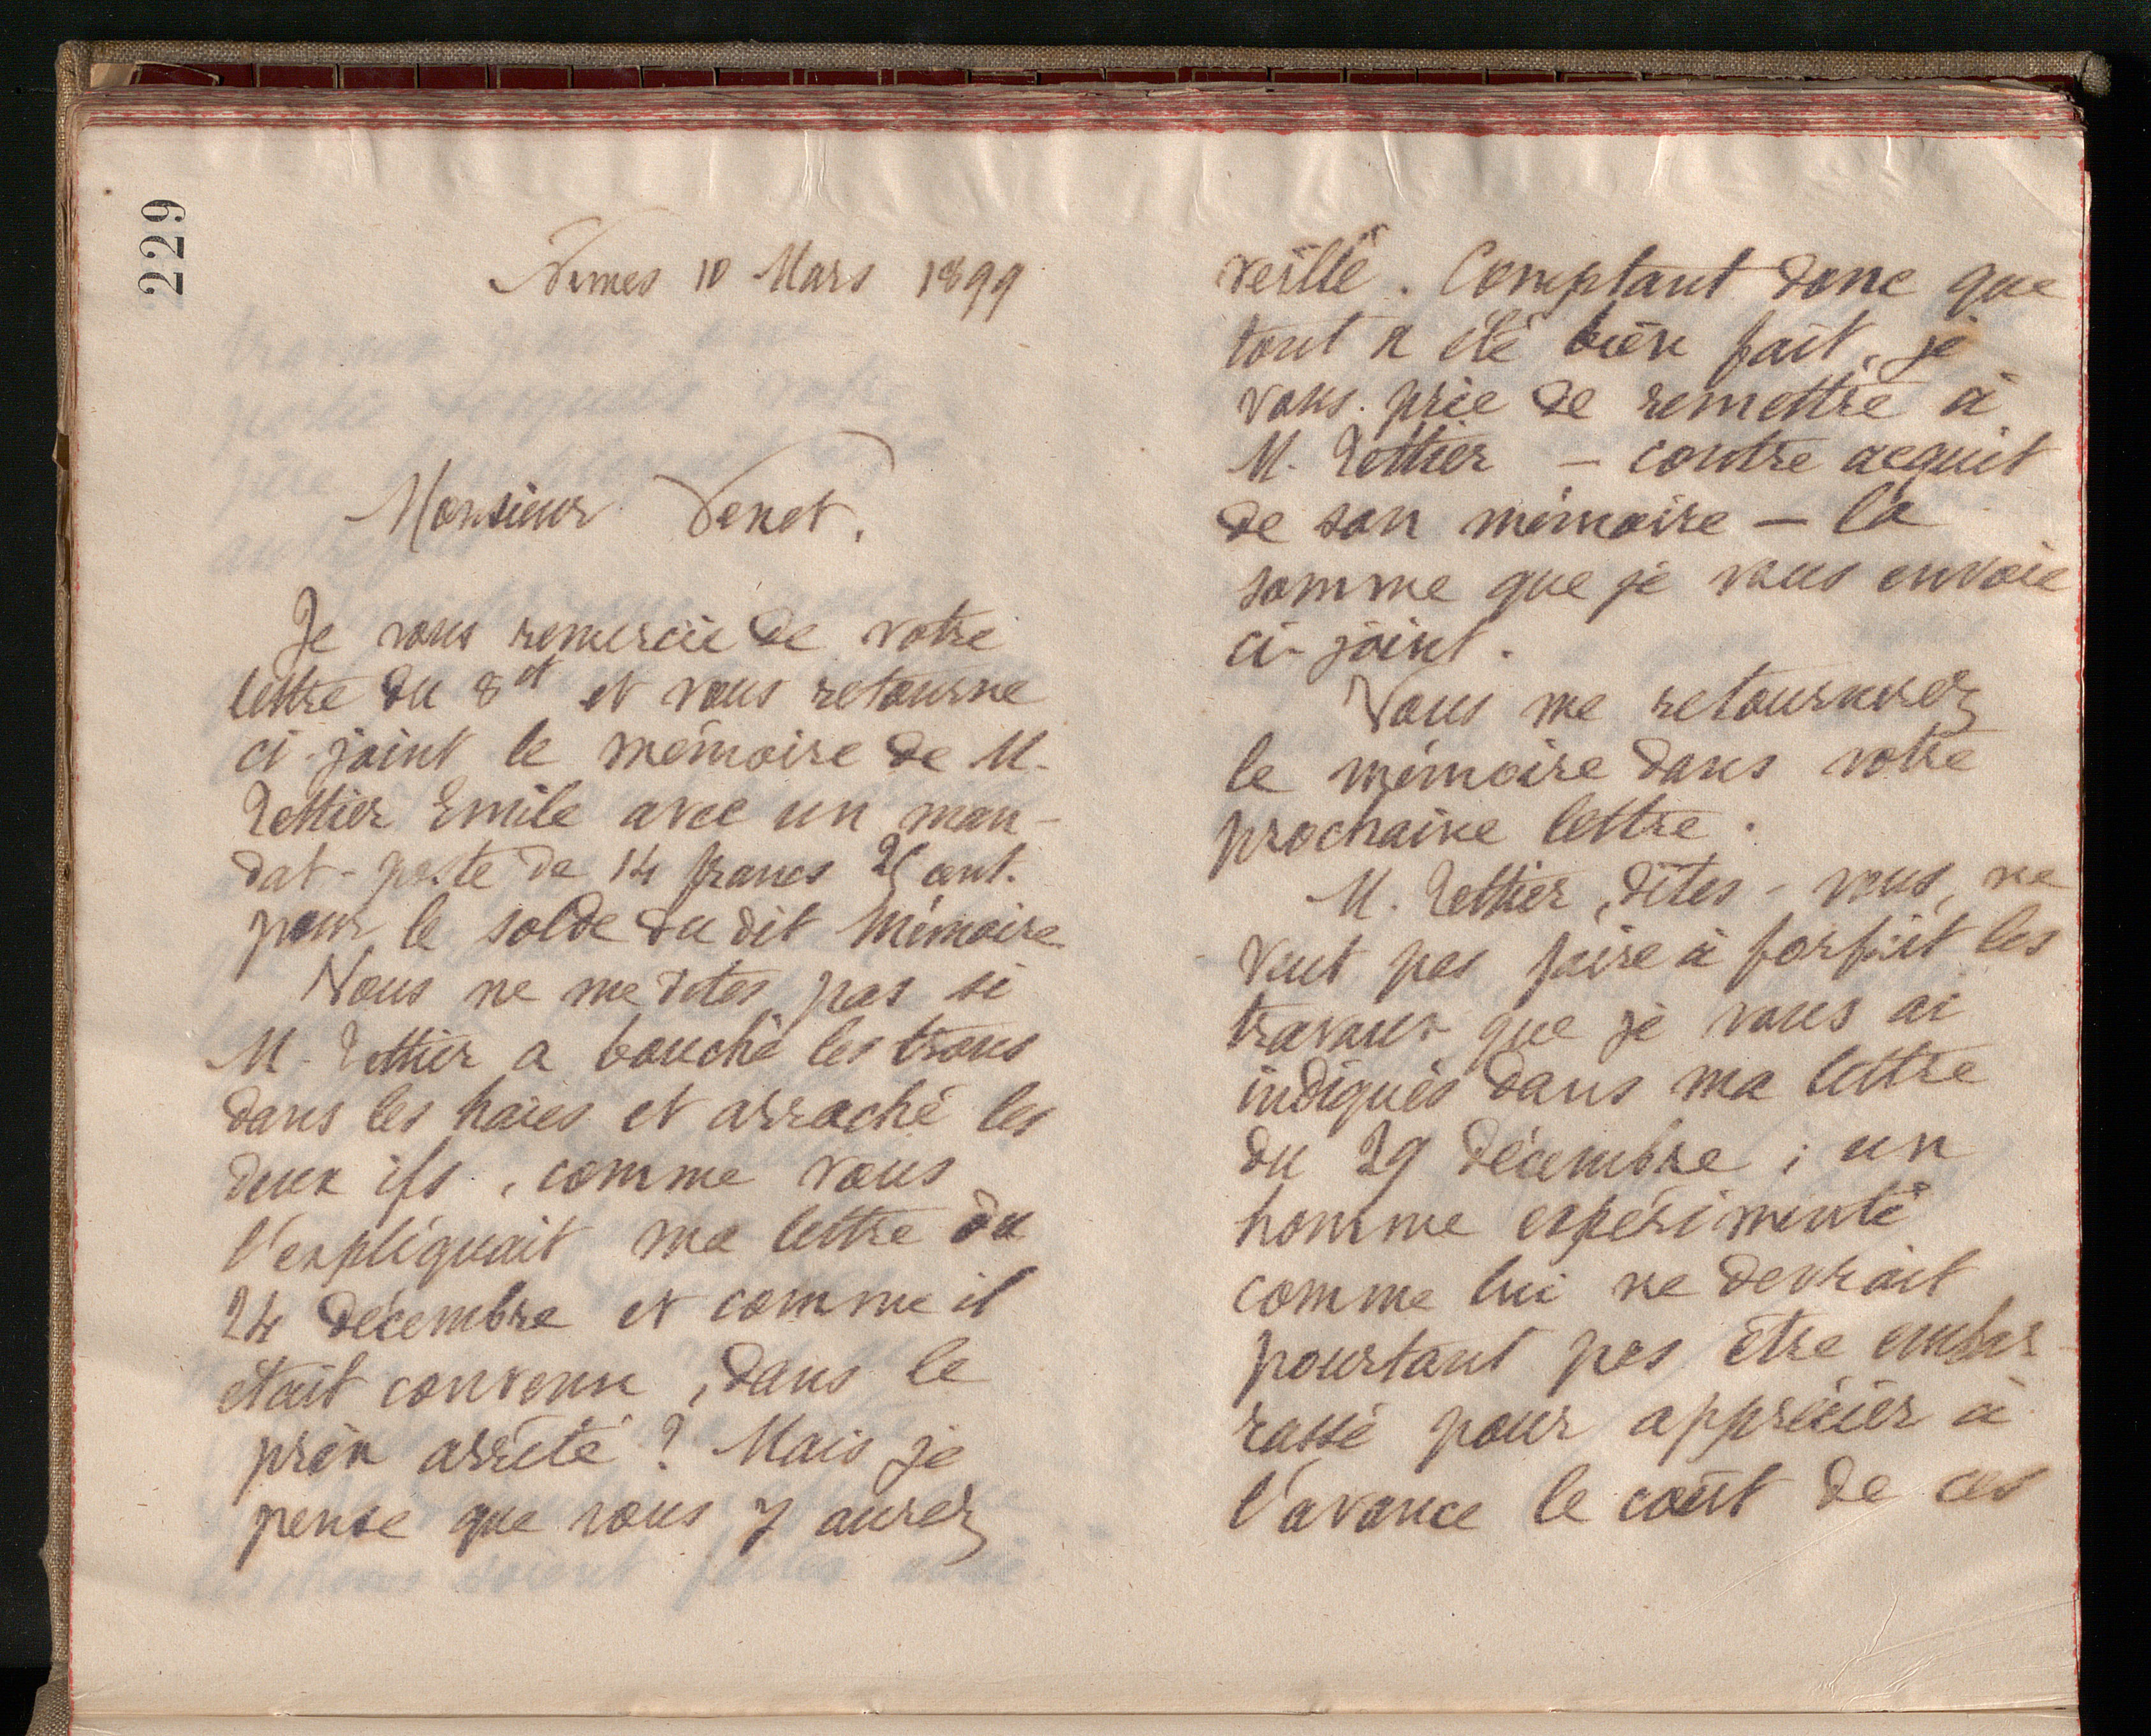 229
Nimes 10 Mars 1899
Monsieur Venet.
Je vous remercie de votre
lettre du 8 et et vous retourne
ci-joint le mémoire de M.
Rettier Emile avec un man-
dat-poste de 14 francs 25 cent.
pour le solde du dit Mémoire
Vous ne me dites pas si
M. Rettier a bouché les trous
dans les haies et arraché les
deux ifs, comme vous
l'expliquait ma lettre du
24 décembre et comme il
était convenu, dans le
prix arrêté ? Mais je
pense que vous y aurez
veillé. Comptant donc que
tout a été bien fait, je
vous prie de remettre à
M. Rettier — contre acquit
de son mémoire — la
somme que je vous envoie
ci-joint.
Vous me retournerez
le mémoire dans votre
prochaine lettre.
M. Rettier, dites-vous, ne
veut pas faire à forfait les
travaux que je vous ai
indiqués dans ma lettre
du 29 décembre ; un
homme expérimenté
comme lui ne devrait
pourtant pas être embar-
rassé pour apprécier à
l'avance le coût de ces